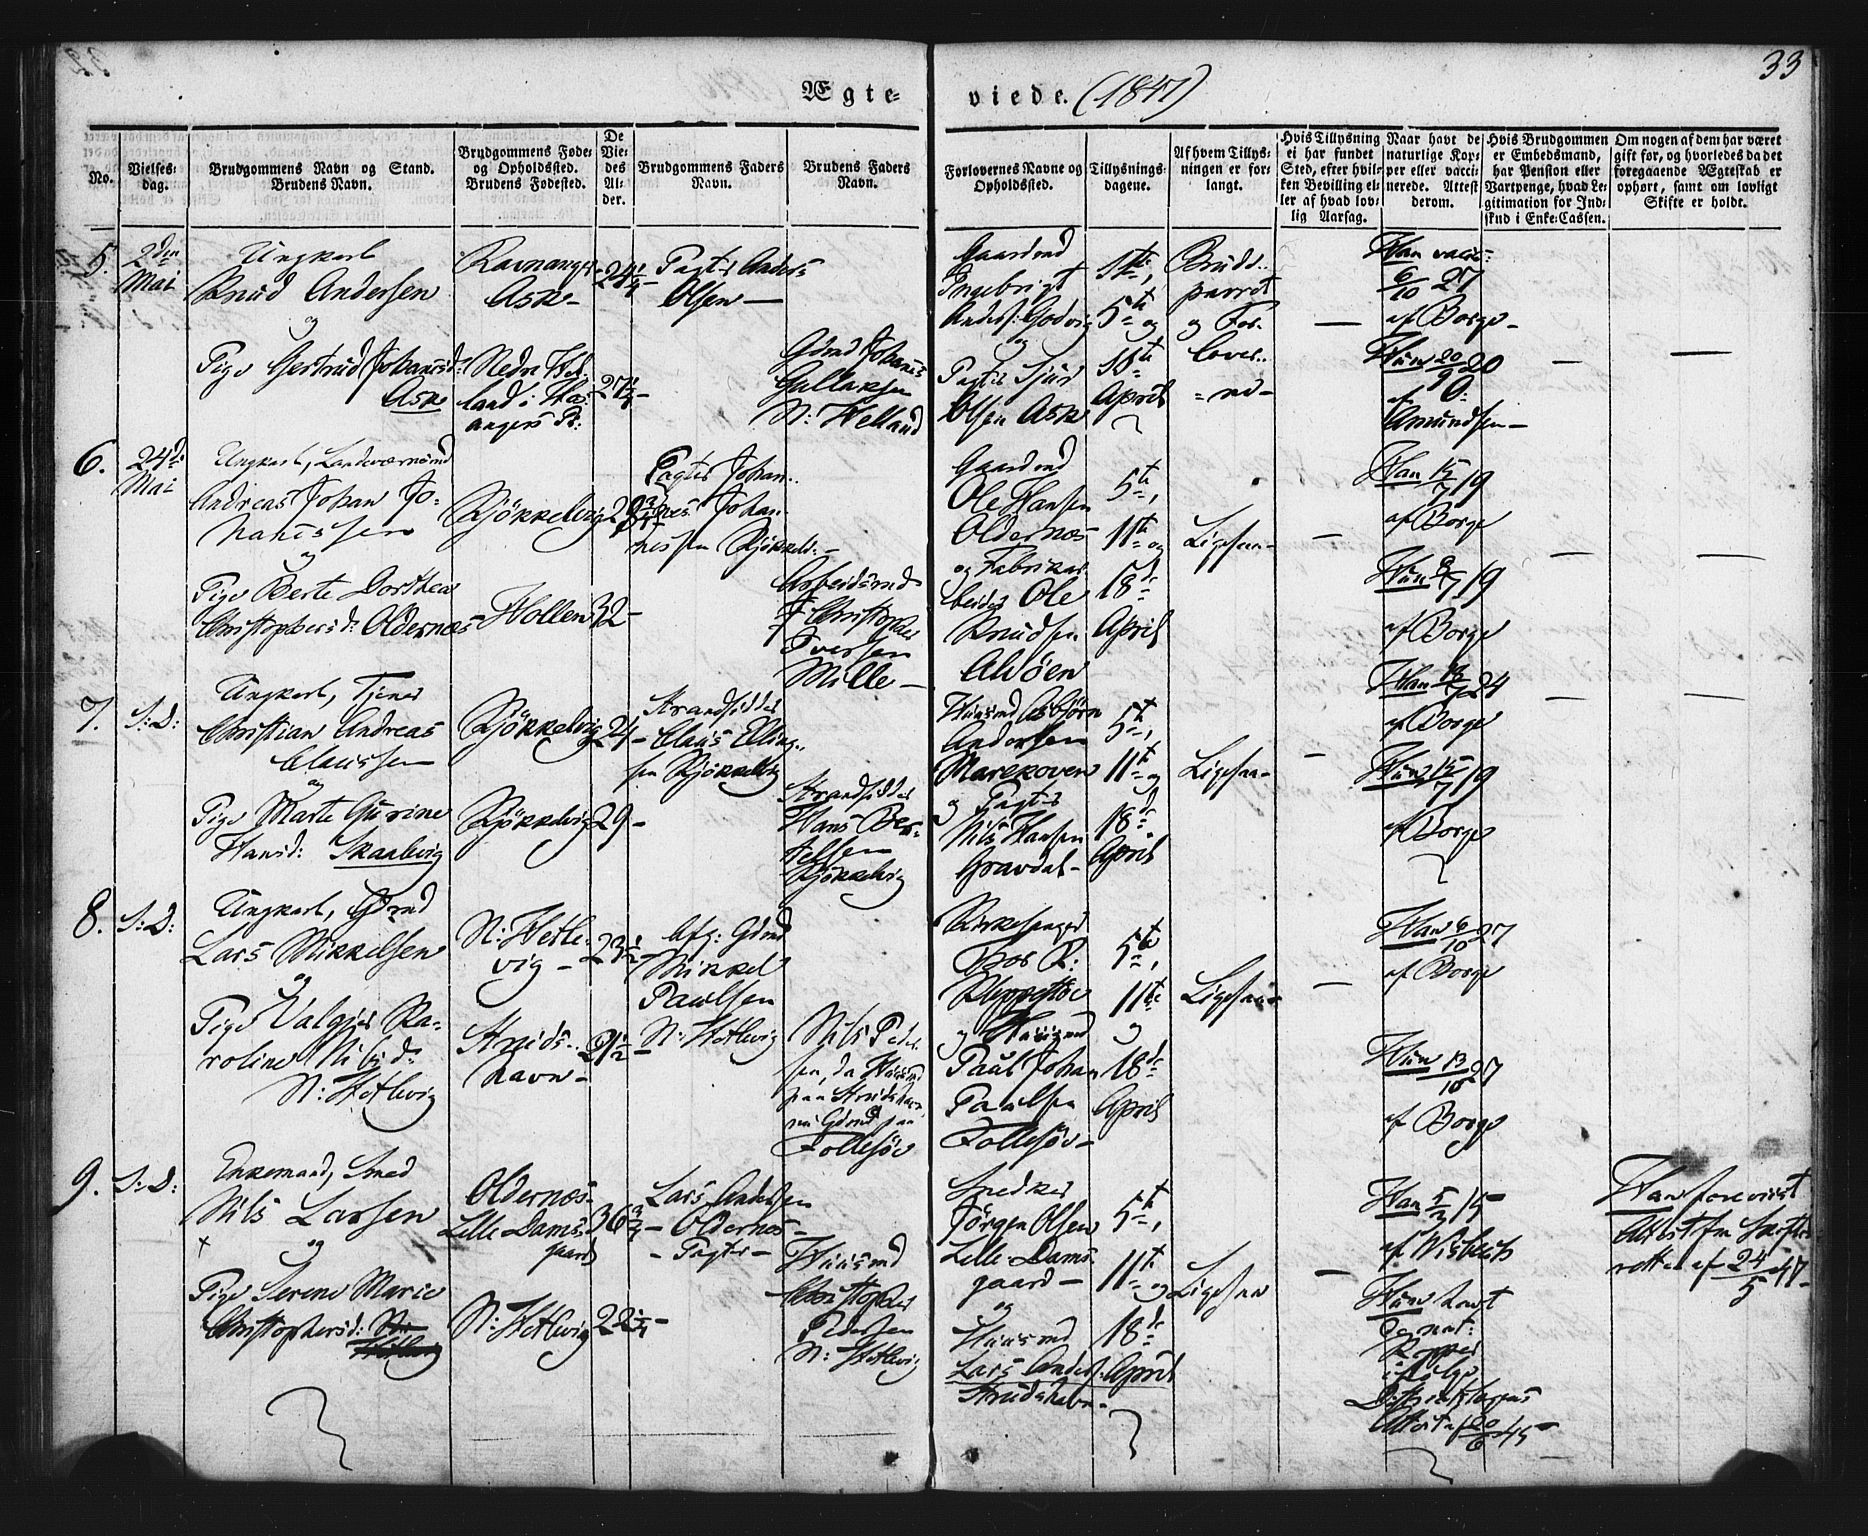 33
Ægte-
viede. (1847)
No.
Vielses-
dag.
Brudgommens Navn og Stand.
Brudens Navn.
Brudgommens Føde-
og Opholdssted.
Brudens Fødested.
De
Vie-
des
Al-
der.
Brudgommens Faders
Navn.
Brudens Faders
Navn.
Forlovernes Navne og
Opholdssted.
Tillysnings-
dagene.
Af hvem Tillys-
ningen er for-
langt.
Hvis Tillysning
ei har fundet
Sted, efter hvil-
ken Bevilling el-
ler af hvad lov-
lig Aarsag.
Naar havt de
naturlige Kop-
per eller vacci-
nerede. Attest
derom.
Hvis Brudgommen
er Embedsmand,
har Pension eller
Vartpenge, hvad Le-
gitimation for Ind-
skud i Enke-Cassen.
Om nogen af dem har været
gift før, og hvorledes da det
foregaaende Ægteskab er
ophørt, samt om lovligt
Skifte er holdt.
5.
2den
Mai
Ungkarl
Knud Andersen
og
Pige Gertrud Johannesd:
Ask
Ravnanger
Ask-
Nedre Hel-
land i Ha-
24 1/4-
27 1/4-
Pagter Anders
Olsen-
Gdmd Johannes
Gullaksen
N: Helland
Gaardmd
Ingebrigt
Anders: Godvig
og
Pagter Sjur
Olsen Ask
4de,
5te og
11te
April
Brud-
parret
og For-
lover-
-ne-
-
Han vacc:
6/10 27
af Borge-
Hun 20/9 20
af O:
Amundsen-
-
-
6.
24de
Mai
Ungkarl, Landeværnsmd
Andreas Johan Jo-
hannessen
og
Pige Berte Dorthea
Christophersd: Oldernæs
Kjøkkelvig
Hollen
28 3/4
32-
Pagter Johan-
nes Johan-
nessen Kjøkkelv:-
Arbeidsmd
Christopher
Iversen
Mille-
Gaardmd
Ole Hansen
Oldernæs
og Fabrikar-
beider Ole
Knudsen
Alvøen
5te,
11te og
18de
April
Ligesaa-
-
Han 15/7 19
af Borge
Hun 8/7 19
af Borge
-
-
7.
S: D:
Ungkarl, Tjener
Christian Andreas
Claussen
og
Pige Marte Gurine
Hansd: Skaalevig
Kjøkkelvig
Kjøkkelvig
24-
29-
Strandsidder
Claus Elling-
sen Kjøkkelvig
Strandsidder
Hans Ber-
telsen
Kjøkkelvig
Huusmd Asbjørn
Andersen
Marekoven
og Pagter
Nils Hansen
Gravdal-
5te,
11te og
18de
April
Ligesaa-
-
Han 19/7 24
af Borge
Hun 15/7 19
af Borge
-
-
8.
S: D:
Ungkarl, Gdmd
Lars Mikkelsen
og
Pige Valgjer Ka-
roline Nilsd:
N: Hetlevig
N: Hetle-
vig-
Struds-
havn-
23 1/2-
21 1/2-
Afg: Gdmd
Mikkel
Paulsen
N: Hetlevig
Nils Peder-
sen, da Huusmd
paa Strudshavn,
nu Gdmd paa
Follesøe
Kirkesanger
Thor K:
Kleppestøe
og Huusmd
Paul Johan
Paulsen
Follesøe-
5te,
11te
og
18de
April
Ligesaa-
-
Han 6/10 27
af Borge
Hun 13/10 27
af Borge
9.
S: D:
Enkemand, Smed
Nils Larsen
og
Pige Serene Marie
Christophersd:
Oldernæs-
Lille Dams-
gaard
N: Hetlevig
36 3/4-
22 1/4-
Lars Andersen
-Oldernæs-
-Pagter-
Huusmd
Christopher
Pedersen
N: Hetlevig
Snedker
Jørgen Olsen
Lille Dams-
gaard-
og
Huusmd
Lars Anders:
Strudshavn-
5te,
11te og
18de
April
Ligesaa
-
Han 5/3 15
af Wisbech
Hun havt
de nat:
Kopper
ifølge
Attest af 20/6 45-
Han foreviist
Attest fra Skifte-
retten af 24/5 47-